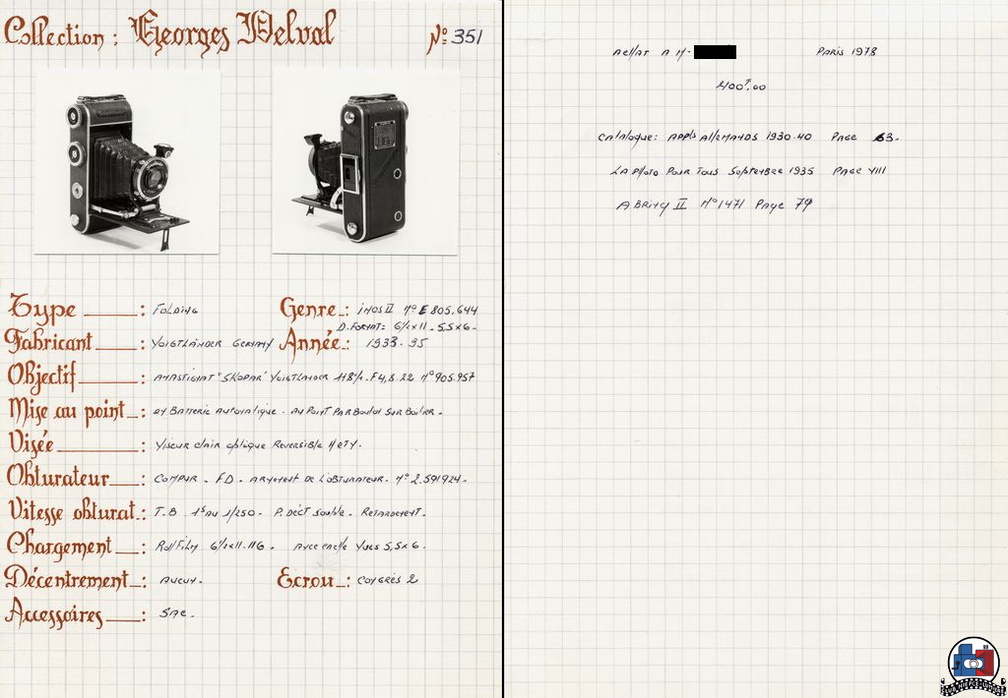 Collection : Georges Delval Nº 351
Type : Folding
Genre : inos II Nº E 805.644
D. Format : 6½x11 - 5,5x6 -
Fabricant : Voigtländer Germany
Année : 1933-35
Objectif : Anastigmat "Skopar" Voigtländer F4,5.22 Nº 905.957
Mise au point : et Batterie Automatique - au Point Par Bouton Sur Boitier -
Visée : Viseur clair oblique Reversible H et V.
Obturateur : Compur - FD - armement de l'obturateur - Nº 2.591924 -
Vitesse obturat : T.B 1S au 1/250 - P. Dect Souple - Retardement.
Chargement : RollFilm 6½x11.116 - Avec 5,5x6.
Décentrement : Aucun -
Ecrou : Congrès 2
Accessoires : Sac -
Achat a M. Paris 1978
400F,00
Catalogue: App. Allemands 1930-40 Page 63 -
La Photo Pour Tous Septembre 1935 Page VIII
Abring II Nº 1471 Page 79